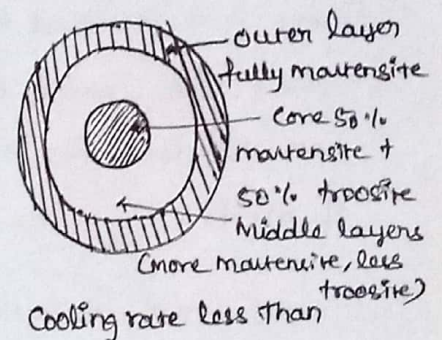 outer layer
fully martensite
Core 50%
martensite +
50% troosite
Middle layers
(more martensite, less
troosite)
Cooling rate less than